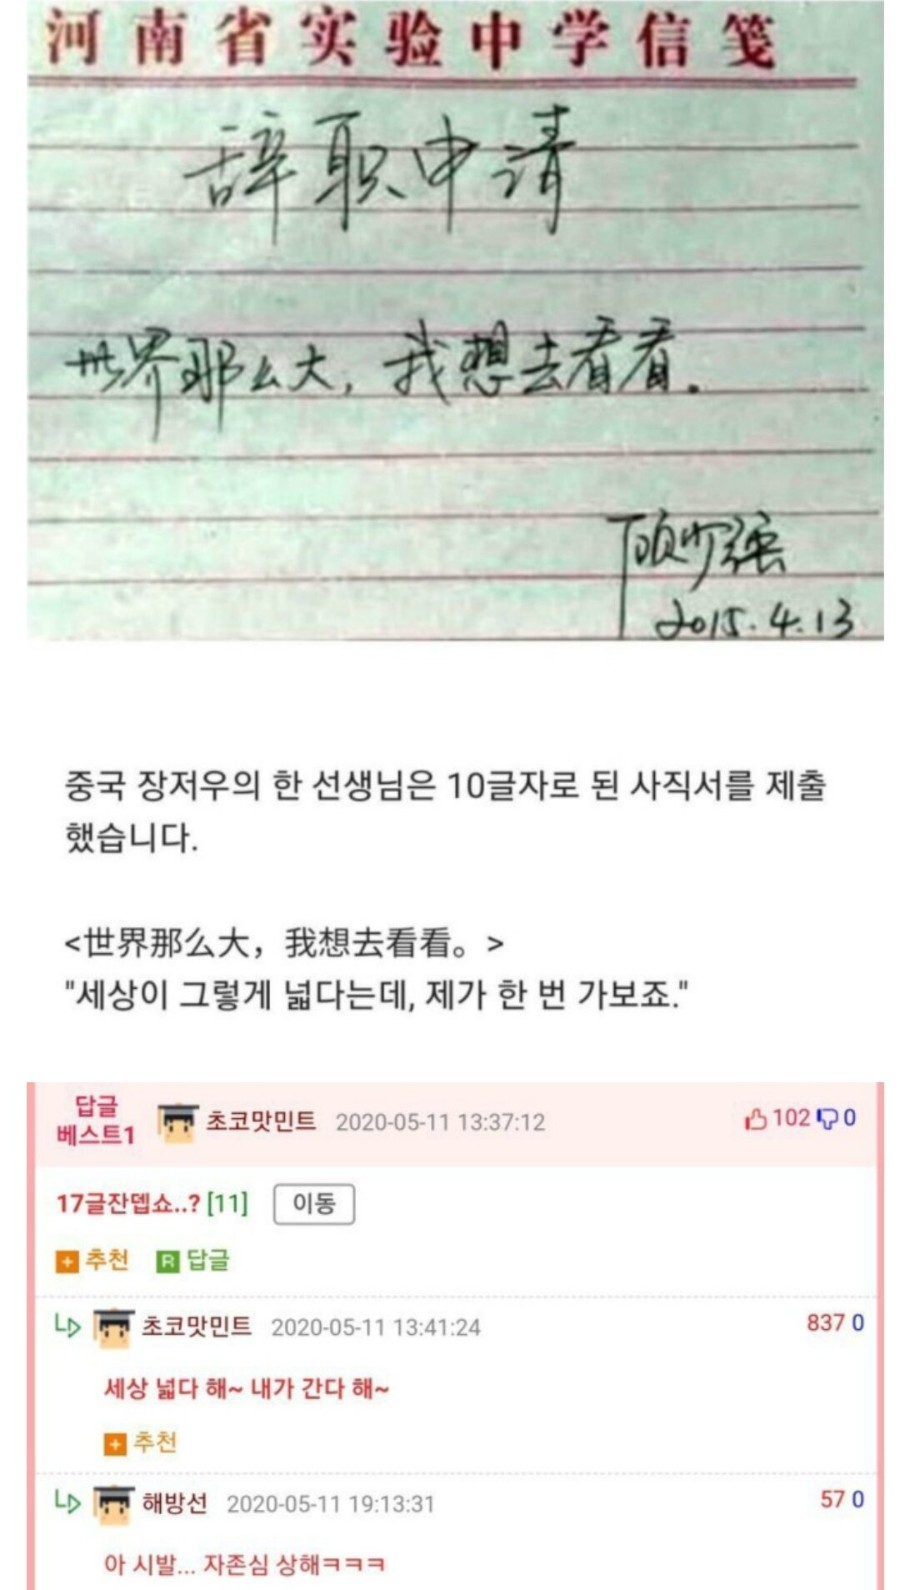 河南省实验中学信笺
辞职申请
世界那么大，我想去看看.
顾少强
2015.4.13
중국 장저우의 한 선생님은 10글자로 된 사직서를 제출
했습니다.
<世界那么大，我想去看看。>
"세상이 그렇게 넓다는데, 제가 한 번 가보죠."
답글
베스트1 초코맛민트 2020-05-11 13:37:12 102 0
17글잔뎁쇼..? [11] 이동
+ 추천 R 답글
초코맛민트 2020-05-11 13:41:24 837 0
세상 넓다 해~ 내가 간다 해~
+ 추천
해방선 2020-05-11 19:13:31 57 0
아 시발... 자존심 상해ㅋㅋㅋ